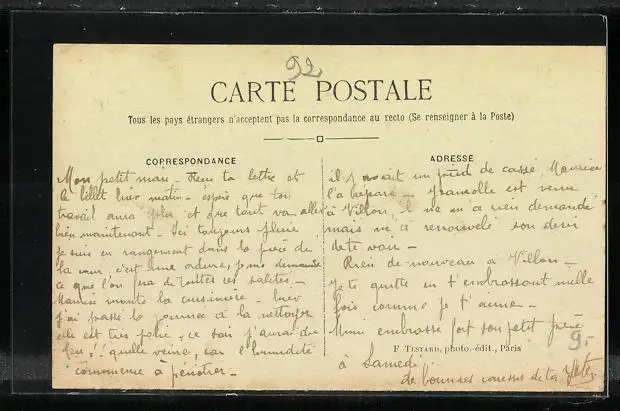 92
CARTE POSTALE
Tous les pays étrangers n'acceptent pas la correspondance au recto (Se renseigner à la Poste)
CORRESPONDANCE
Mon petit man - Reçu ta lettre et
le billet hier matin - espère que ton
travail aura plu et que tout va aller
bien maintenant - Ici toujours pluie,
je suis en rangement dans la pièce de
la cour, c'est une ordure, je me demande
ce que l'on fera de toutes ces saletés -
Maurice monte la cuisinière - hier
j'ai passé la journée à la nettoyer
elle est très jolie, ce soir j'aurai du
feu, quelle veine, car l'humidité
commence à pénétrer -
ADRESSE
il y avait un pied de cassé, Maurice
l'a réparé - est venu
à Villon, il ne m'a rien demandé
mais m'a renouvelé son désir
de te voir -
Rien de nouveau à Villon -
Je te quitte en t'embrassant mille
fois comme je t'aime -
Mimi embrasse fort son petit frère
F TESTARD, photo.-édit., Paris
9-
à Samedi
de bonnes caresses de ta